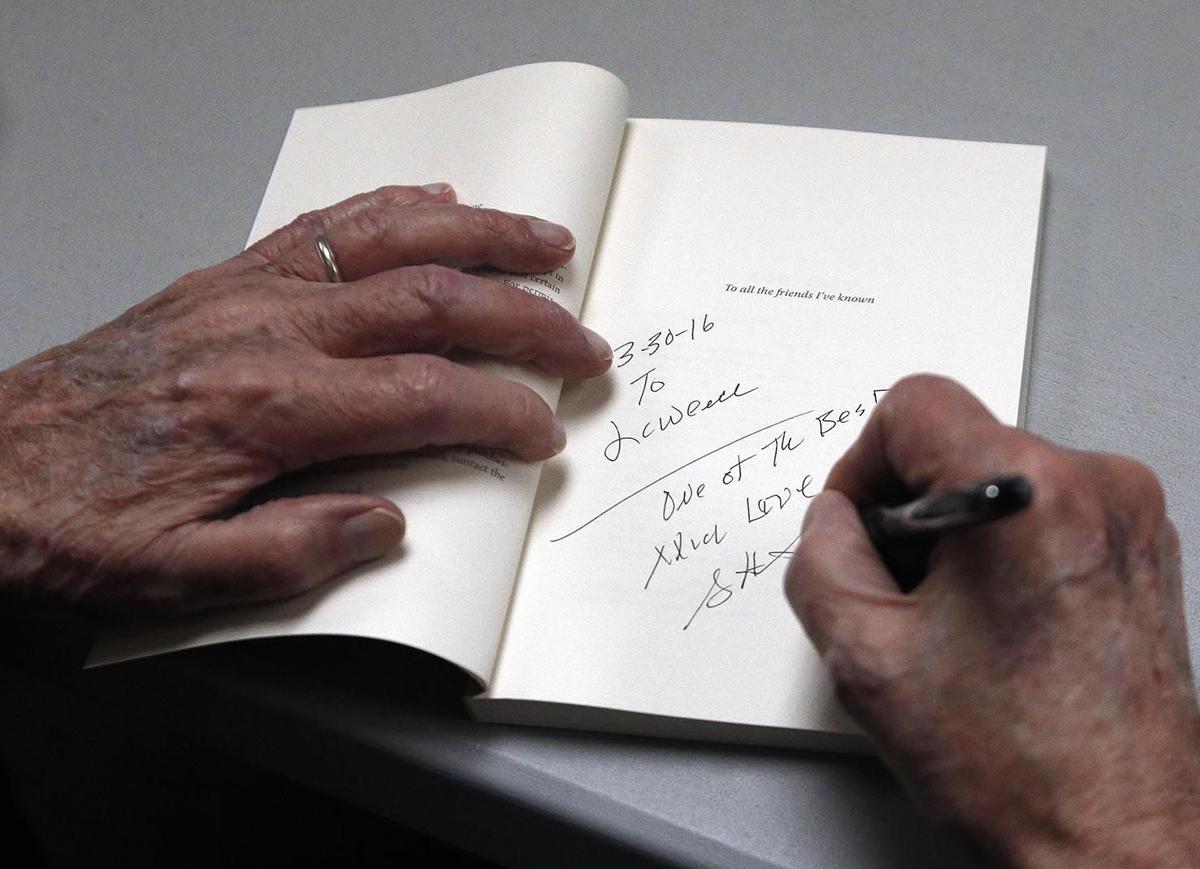 in
and certain
For permis
contact the
To all the friends I've known
3-30-16
To
Lowell
One of Th Best
Love